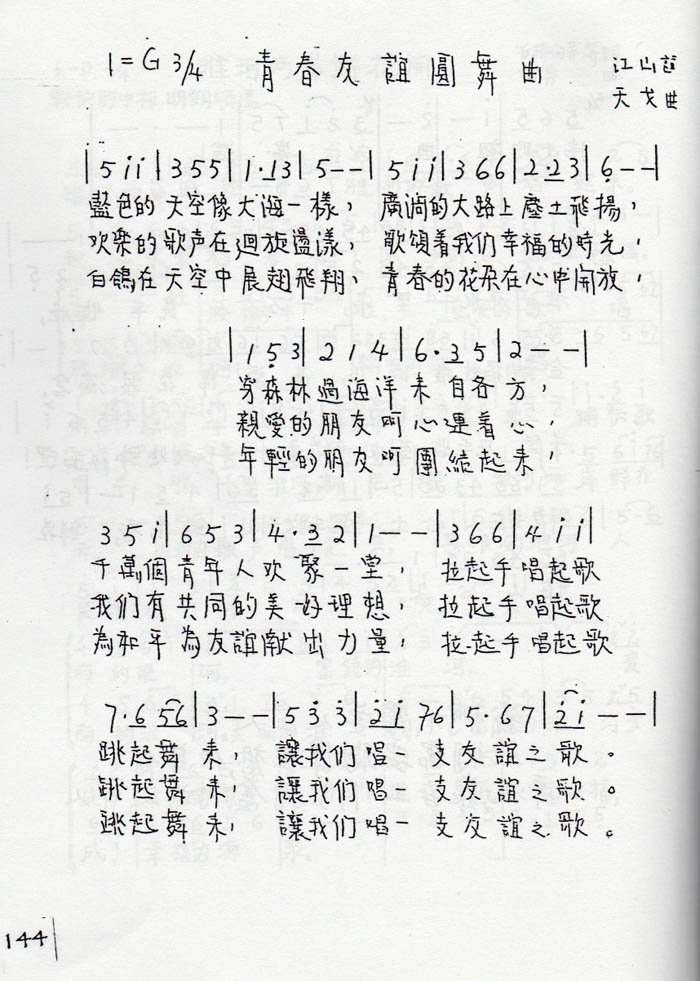 1=G 3/4 青春友誼圓舞曲 江山詞
天戈曲
|5 i i|3 5 5|1·1 3|5 — —|5 i i|3 6 6|2·2 3|6 — —|
藍色的天空像大海一樣，廣濶的大路上塵土飛揚，
欢樂的歌声在迴旋盪漾，歌頌着我们幸福的時光，
白鴿在天空中展翅飛翔、青春的花朵在心中開放，
|1 5 3|2 1 4|6·3 5|2 — —|
穿森林過海洋來自各方，
親愛的朋友呵心連着心，
年輕的朋友呵團結起來，
3 5 i|6 5 3|4·3 2|1 — —|3 6 6|4 i i|
千萬個青年人欢聚一堂，拉起手唱起歌
我们有共同的美好理想，拉起手唱起歌
為和平為友誼献出力量，拉起手唱起歌
7·6 5 6|3 — —|5 3 3|2 i 7 6|5·6 7|2 i — —|
跳起舞來，讓我们唱一支友誼之歌。
跳起舞來，讓我们唱一支友誼之歌。
跳起舞來，讓我们唱一支友誼之歌。
144